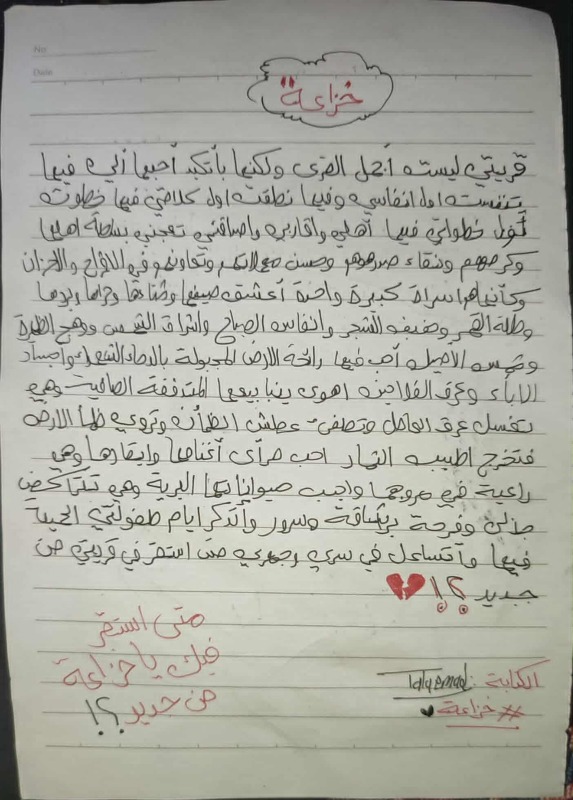 No
Date
خزاعة
قريتي ليست أجمل القرى ولكنها بأتكيد أحبها ألي فيها
تنفست اول انفاسي وفيها نطقت اول كلامتي فيها خطوت
أول خطواتي فيها أهلي واقاربي واصدقائي تعجبني بساطة اهليها
وكرمهم ونقاء صدورهم وحسن معاملاتهم وتعاونهم في الافراح والاحزان
وكأنهم اسراة كبيرة واحدة أعشق صيفها وشتاءها وحرها وبردها
وطلة القمر وحفيف الشجر وانفاس الصباح واشراق الشمس ووهج الظهيرة
وشمس الأصيل أحب فيها رائحة الأرض المجبولة بالدماء الشهداء وأجساد
الاباء وعرق الفلاحين اهوى ينابيعها المتدفقة الصافية وهي
تغسل عرق العامل وتطفئ عطش الظمآن وتروي ظمأ الارض
فتخرج اطيب الثمار احب مرأى أغنامها وابقارها وهي
راعية في مروجها واحب حيواناتها البرية وهي تتراكض
بجذل وفرحة برشاقة وسرور وأتذكر ايام طفولتي الحبيبة
فيها وأتساءل في سري وجهري متى استقر في قريتي من
جديد ؟! 💔
متى استقر
فيك يا خزاعة
من جديد ؟!
الكاتبة :
#خزاعة